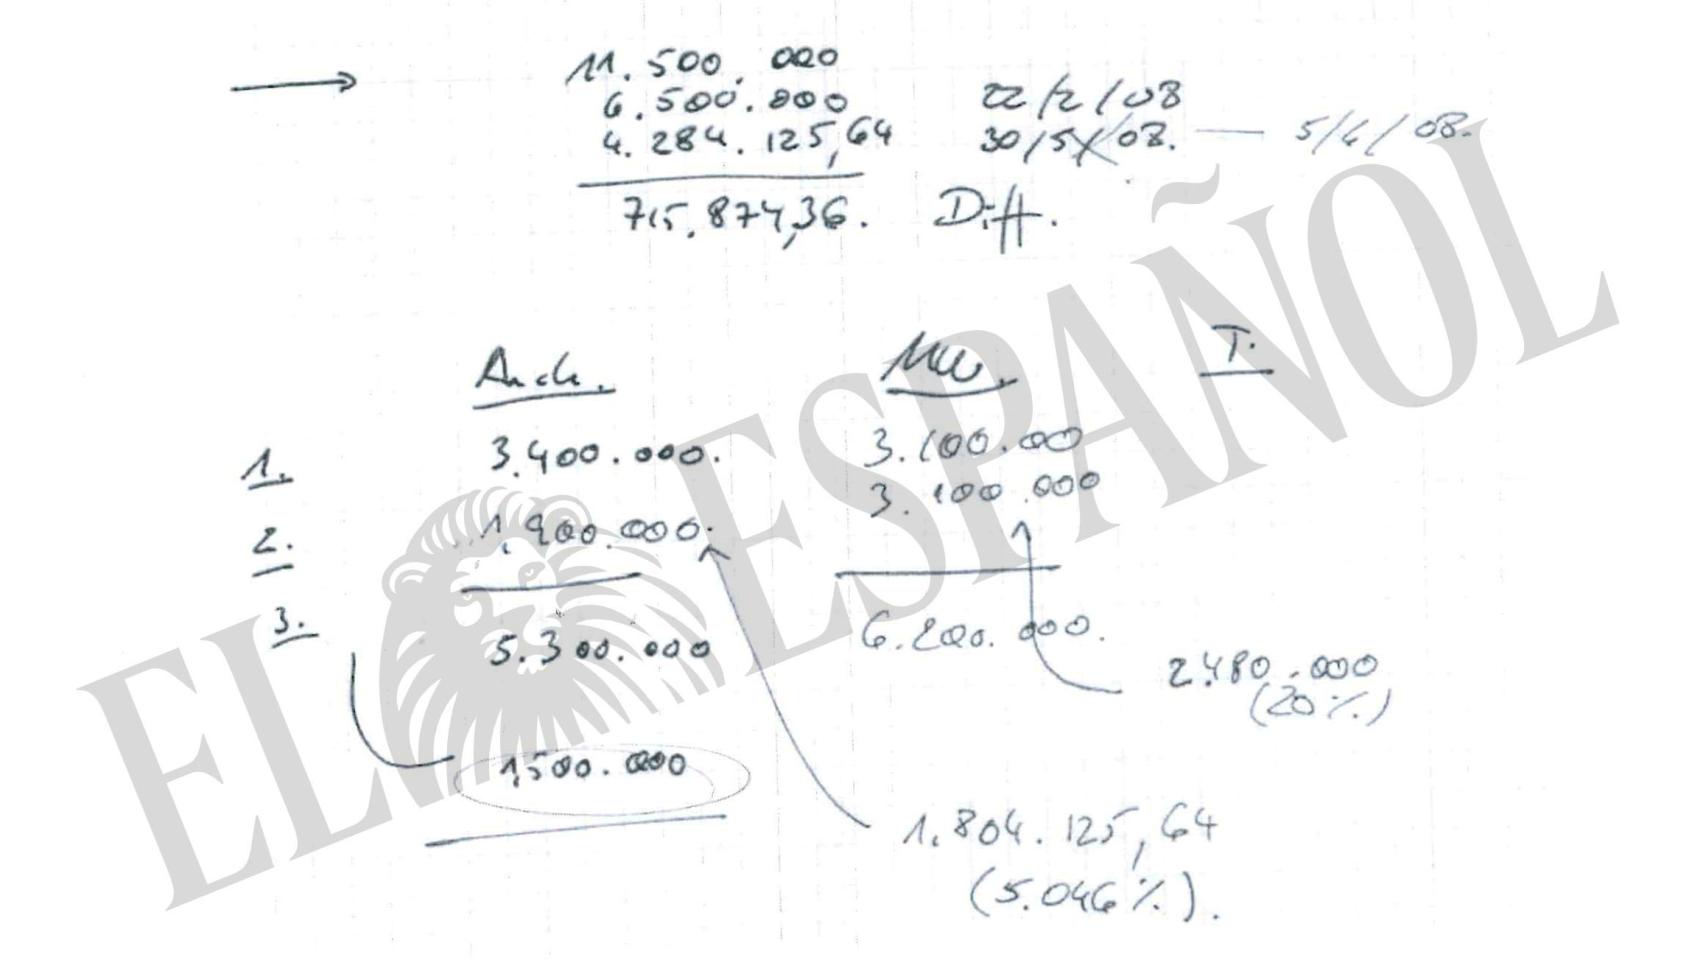 11.500.000
6.500.000 22/2/08
4.284.125,64 30/5/08. — 5/6/08.
715.874,36. Diff.
T.
1. 3.400.000. 3.100.00
3.100.000
2. 1.900.000.
3. 5.300.000 6.200.000.
2.480.000
(20%)
1,500.000
1.804.125,64
(5.046%).
EL ESPAÑOL